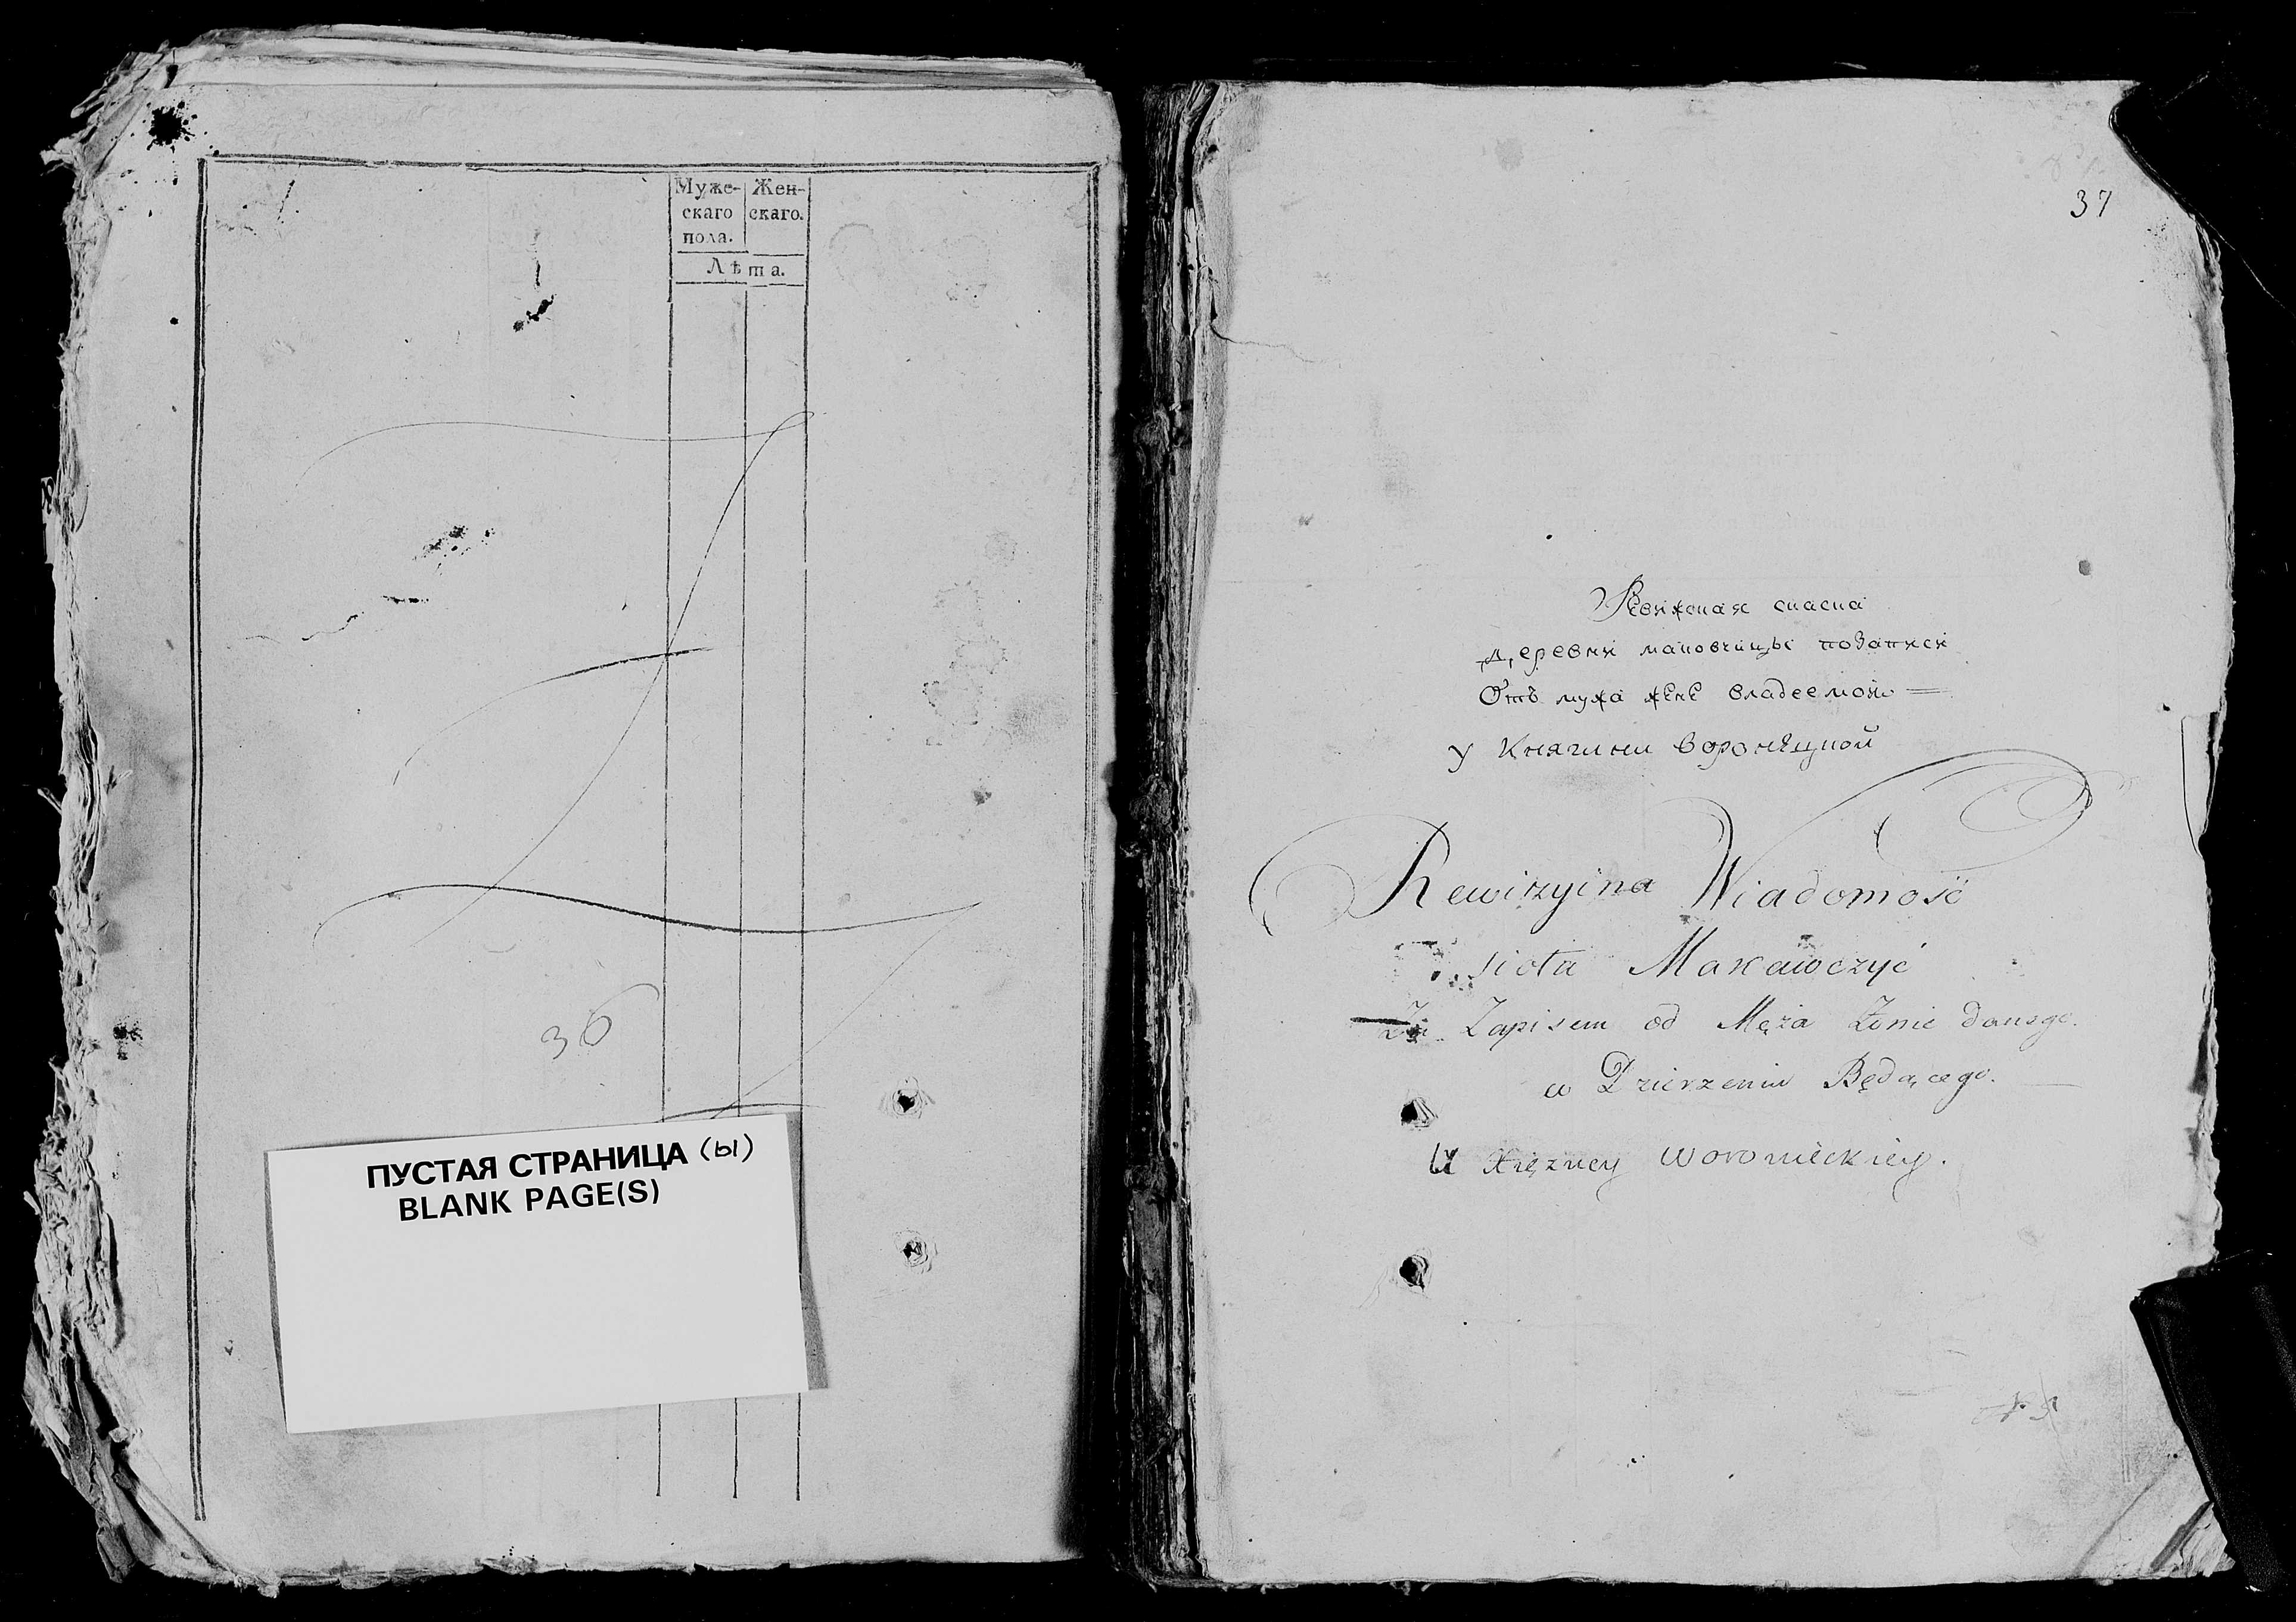 Муже-
скаго
пола.
Жен-
скаго.
Лѣта.
36
ПУСТАЯ СТРАНИЦА (Ы)
BLANK PAGE(S)
37
Ревижская
деревни маковчицы по записи
Отъ мужа жене владеемой
у Княгини Воронецкой
Rewizyina Wiadomość
siola Makawczyć
Za Zapisem od Męża Żonie danego.
w Dzierzeniu Będącego.
U Xiężney Woronieckiey.